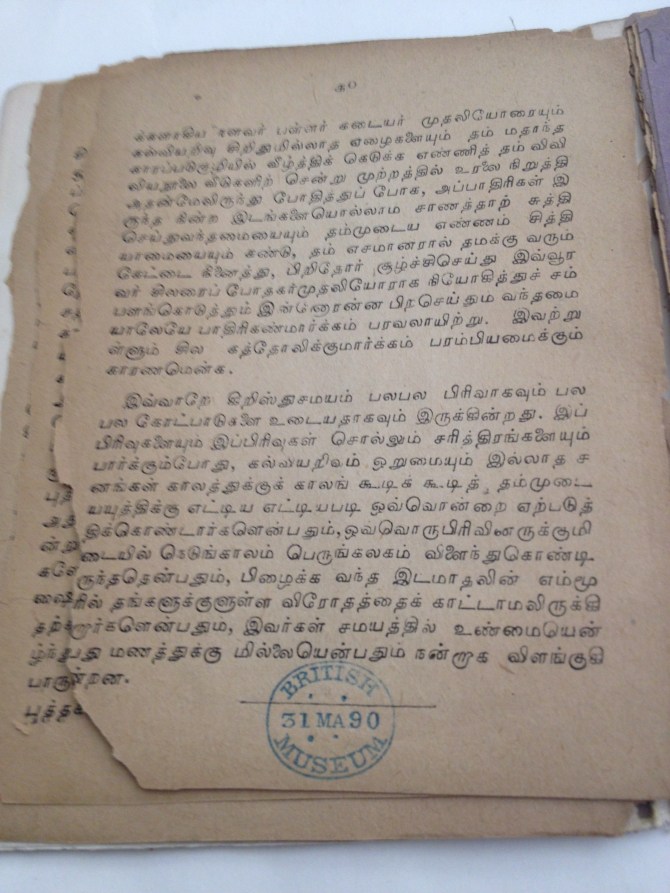 ௩௦
க்களாகிய னளவர் பள்ளர் கடையர் முதலியோரையும்
கல்வியறிவு சிறிதுமில்லாத ஏழைகளையும் தம் மதாந்த
காரப்படுகுழியில் வீழ்த்திக் கெடுக்க எண்ணித் தம் விவி
லியநூலை வீடுகளிற் சென்று முற்றத்தில் உரலை நிறுத்தி
அதன்மேலிருந்து போதித்துப் போக, அப்பாதிரிகள் இ
ருந்த கின்ற இடங்களையொல்லாம சாணத்தாற் சுத்தி
செய்துவந்தமையையும் தம்முடைய எண்ணம் சித்தி
யாமையையும் கண்டு, தம் எசமானரால் தமக்கு வரும்
கேட்டை நினைத்து, பிறிதோர் சூழ்ச்சிசெய்து இவ்வூர
வர் சிலரைப் போதகர்முதலியோராக நியோகித்துச் சம்
பளங்கொடுத்தும் இன்னோரன்ன பிறசெய்தும வந்தமை
யாலேயே பாதிரிகண்மார்க்கம் பரவலாயிற்று. இவற்று
ள்ளும் சில கத்தோலிக்குமார்க்கம் பரம்பியமைக்கும்
காரணமென்க.
இவ்வாறே கிறிஸ்துசமயம் பலபல பிரிவாகவும் பல
பல கோட்பாடுகளை உடையதாகவும் இருக்கின்றது. இப்
பிரிவுகளையும் இப்பிரிவுகள் சொல்லும் சரித்திரங்களையும்
பார்க்கும்போது, கல்வியறிவும் ஒறுமையும் இல்லாத ச
னங்கள் காலத்துக்குக் காலங் கூடிக் கூடித் தம்முடை
யயுத்திக்கு எட்டிய எட்டியபடி ஒவ்வொன்றை ஏற்படுத்
திக்கொண்டார்களென்பதும், ஒவ்வொருபிரிவினருக்குமி
டையில் நெடுங்காலம் பெருங்கலகம் விளைந்துகொண்டி
ருந்ததென்பதும், பிழைக்க வந்த இடமாதலின் எம்மூ
ரில் தங்களுக்குளுள்ள விரோதத்தைக் காட்டாமலிருக்கி
றார்களென்பதும, இவர்கள் சமயத்தில் உண்மையென்
பது மணத்துக்கு மில்லையென்பதும் நன்றாக விளங்குகி
ன்றன.
BRITISH
31 MA 90
MUSEUM